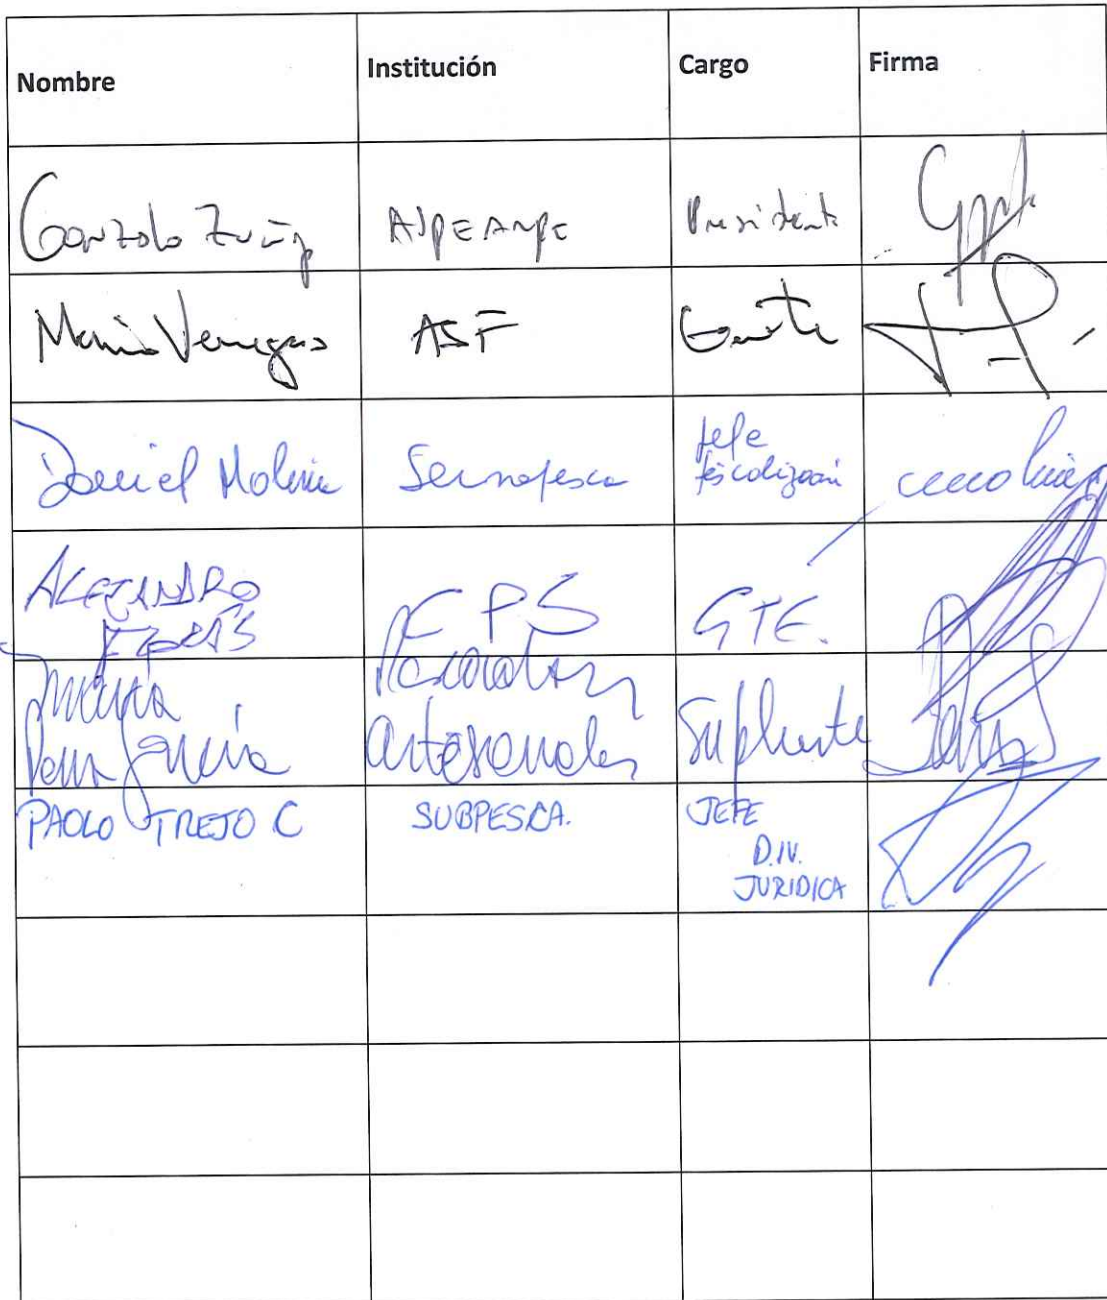 Nombre Institución Cargo Firma
Gonzalo Zuñiga Presidente
Mario Venegas ASF Gerente
Daniel Molina Sernapesca Jefe
fiscalización
ALEJANDRO FPS GTE.
María Pescadores
García artesanales Suplente
PAOLO TREJO C SUBPESCA. JEFE
DIV.
JURIDICA